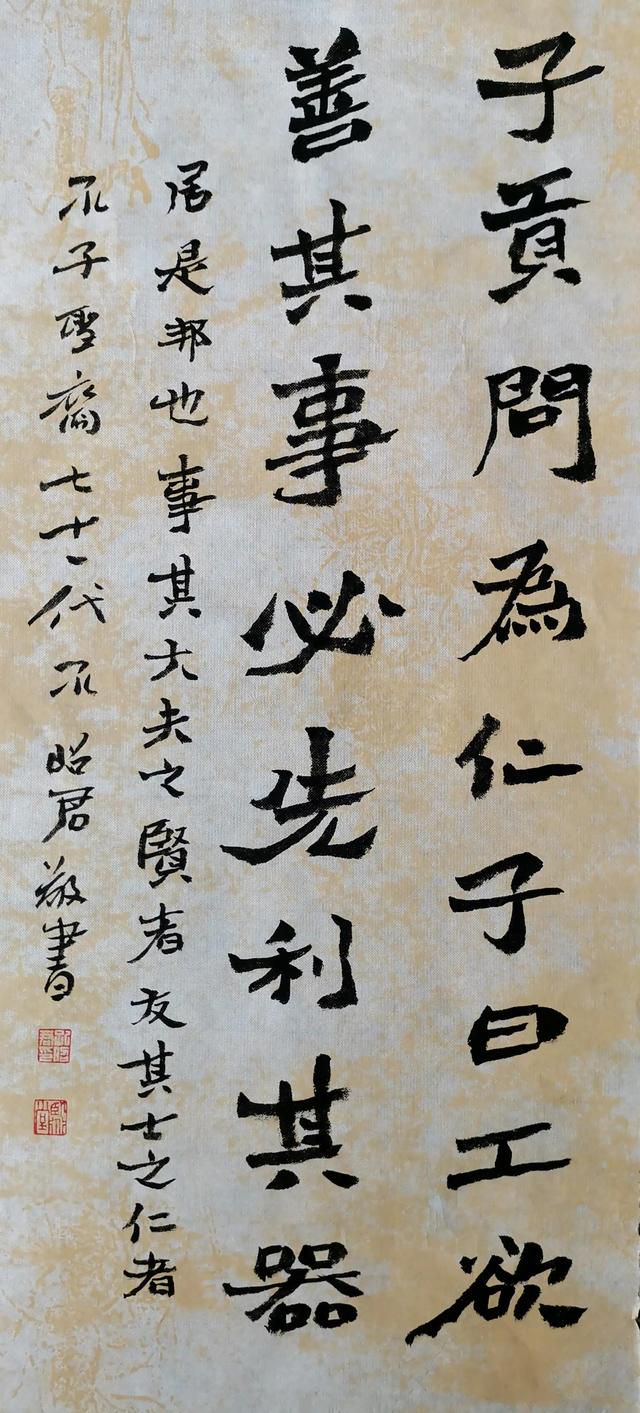 子貢問為仁子曰工欲
善其事必先利其器
居是邦也事其大夫之賢者友其士之仁者
孔子聖裔七十一代孔昭君敬書